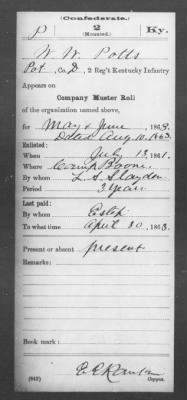 (Confederate.)
P 2 Ky.
(Mounted.)
W. W. Potts
Pvt, Co. D, 2 Reg't Kentucky Infantry
Appears on
Company Muster Roll
of the organization named above,
for May & June, 1863.
Dated Aug. 10. 1863.
Enlisted:
When July 13, 1861.
Where Camp Boone.
By whom L. S. Slayden
Period 3 Years
Last paid:
By whom Estep
To what time April 30, 1863.
Present or absent present
Remarks:
Book mark:
(642) Copyist.